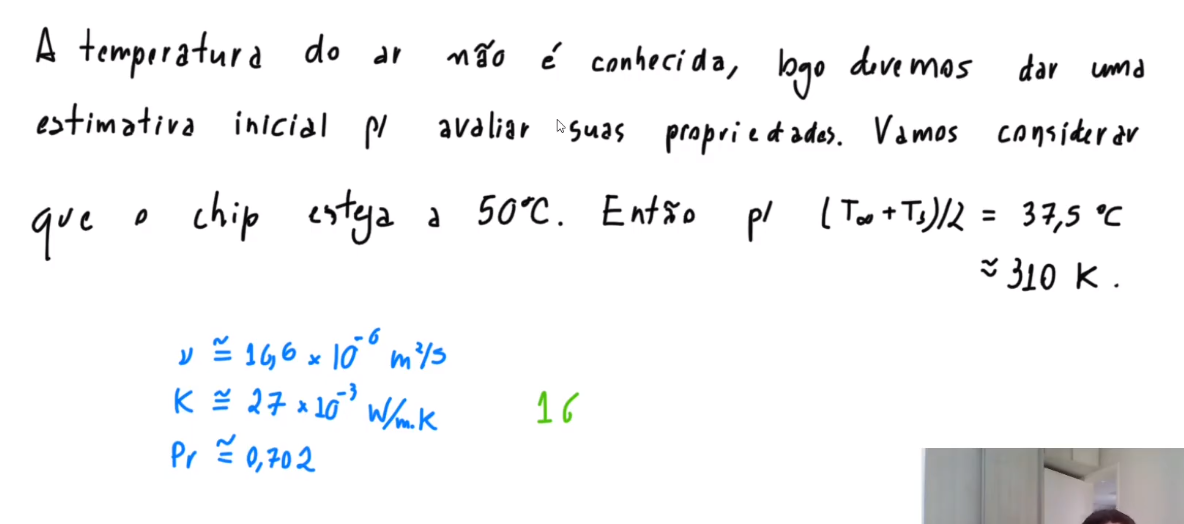 A temperatura do ar não é conhecida, logo devemos dar uma
estimativa inicial p/ avaliar suas propriedades. Vamos considerar
que o chip esteja a 50°C. Então p/ (T∞ + Ts)/2 = 37,5 °C
≈ 310 K.
ν ≅ 16,6 × 10⁻⁶ m²/s
K ≅ 27 × 10⁻³ W/m.K
16
Pr ≅ 0,702